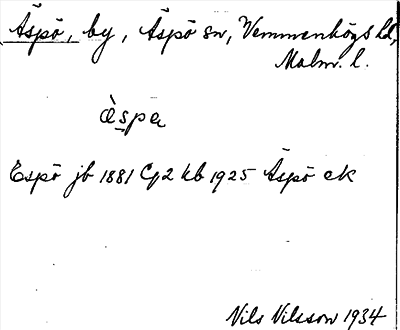 Äspö, by, Äspö sn, Vemmenhögs hd,
Malm. l.
äspa
Espö jb 1881 C 92 kb 1925 Äspö ek
Nils Nilsson 1934